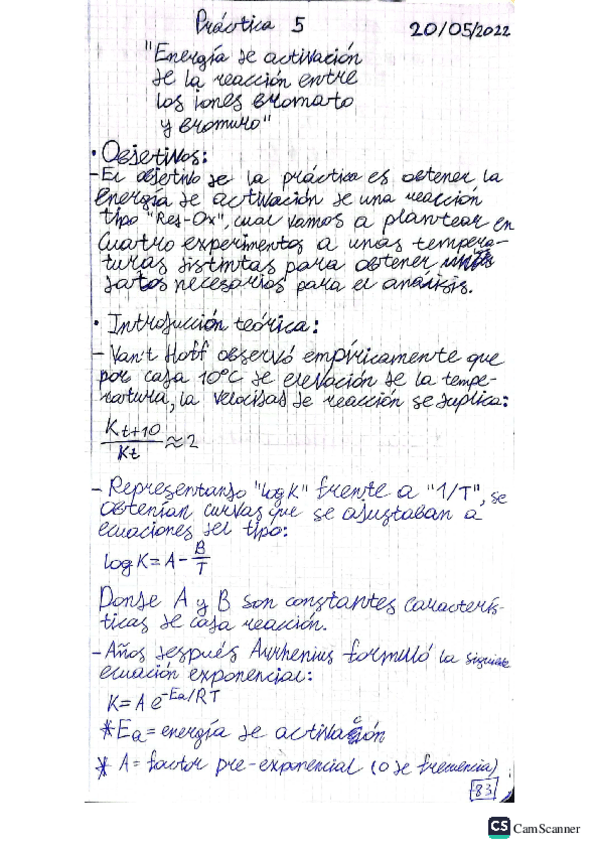 Práctica 5 20/05/2022
"Energía de activación
de la reacción entre
los iones bromato
y bromuro"
• Objetivos:
- El objetivo de la práctica es obtener la
Energía de activación de una reacción
tipo "Red-Ox", cual vamos a plantear en
cuatro experimentos a unas tempera-
turas distintas para obtener
datos necesarios para el análisis.
• Introducción teórica:
- Van't Hoff observó empíricamente que
por cada 10°C de elevación de la tempe-
ratura, la velocidad de reacción se duplica:
Kt+10 / Kt ≈ 2
- Representando "log K" frente a "1/T", se
obtenían curvas que se ajustaban a
ecuaciones del tipo:
log K = A - B/T
Donde A y B son constantes caracterís-
ticas de cada reacción.
- Años después Arrhenius formuló la siguiente
ecuación exponencial:
K = A e^-Ea/RT
* Ea = energía de activación
* A = factor pre-exponencial (o de frecuencia)
83
CS CamScanner